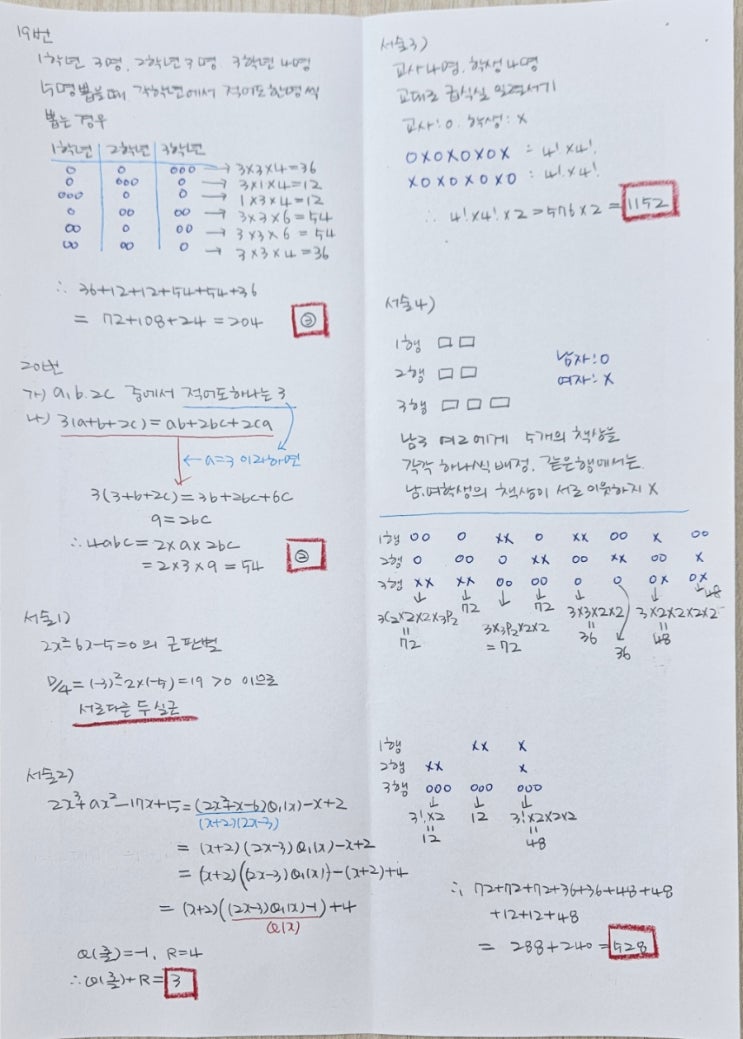 19번
1학년 3명, 2학년 3명, 3학년 4명
5명 뽑을때 각학년에서 적어도 한명씩
뽑는 경우
1학년 2학년 3학년
o o ooo → 3×3×4=36
o ooo o → 3×1×4=12
ooo o o → 1×3×4=12
o oo oo → 3×3×6=54
oo o oo → 3×3×6=54
oo oo o → 3×3×4=36
∴ 36+12+12+54+54+36
= 72+108+24=204 ③
20번
가) a, b, 2c 중에서 적어도 하나는 3
나) 3(a+b+2c)=ab+2bc+2ca
← a=3 이라하면
3(3+b+2c)=3b+2bc+6c
9=2bc
∴ 4abc=2×a×2bc
=2×3×9=54 ②
서술1)
2x²-6x-5=0의 근 판별
D/4=(-3)²-2×(-5)=19>0 이므로
서로다른 두 실근
서술2)
2x³+ax²-17x+15=(2x²+x-6)Q₁(x)-x+2
(x+2)(2x-3)
=(x+2)(2x-3)Q₁(x)-x+2
=(x+2)((2x-3)Q₁(x))-(x+2)+4
=(x+2)((2x-3)Q₁(x)-1)+4
Q(x)
Q(3/2)=-1, R=4
∴Q(3/2)+R=3
서술3)
교사 4명, 학생 4명
교대로 급식실 일렬서기
교사:o, 학생:x
oxoxoxox : 4!×4!
xoxoxoxo : 4!×4!
∴ 4!×4!×2=576×2=1152
서술4)
1행 □□
2행 □□
3행 □□□
남자:o
여자:x
남3 여2에게 5개의 책상을
각각 하나씩 배정, 같은행에서는
남,여학생의 책상이 서로 이웃하지 x
1행 oo o xx o xx oo x oo
2행 o oo o xx oo xx oo x
3행 xx xx oo oo o o ox ox
3C2×2×2×3P2 72 72 3×3×2×2 3×2×2×2×2 48
=72 3×3P2×2×2 =36 =48
=72 36
1행 xx x
2행 xx x
3행 ooo ooo ooo
3!×2 12 3!×2×2×2
=12 =48
∴ 72+72+72+36+36+48+48
+12+12+48
= 288+240=528